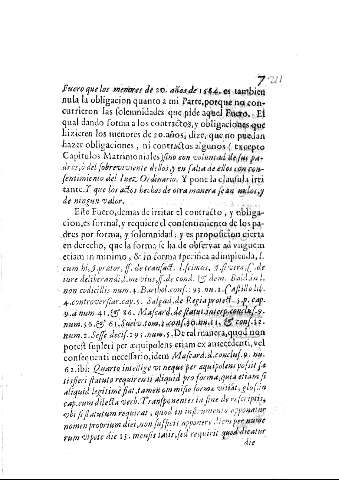 7 211
Fuero que los menores de 20. años de 1564. es tambien
nula la obligacion quanto a mi Parte, porque no con-
currieron las solemnidades que pide aquel Fuero. El
qual dando forma a los contractos, y obligaciones que
hizieren los menores de 20. años, dize, que no puedan
hazer obligaciones, ni contractos algunos (excepto
Capitulos Matrimoniales) sino con voluntad de sus pa-
dres, ò del sobreviviente dellos, y en falta de ellos con con-
sentimiento del Iuez Ordinario. Y pone la clausula irri-
tante. Y que los actos hechos de otra manera sean nulos, y
de ningun valor.
Este Fuero, demas de irritar el contracto, y obliga-
cion, es formal, y requiere el consentimiento de los pa-
dres por forma, y solemnidad: y es proposicion cierta
en derecho, que la forma se ha de observar ad unguem
etiam in minimo, & in forma specifica adimplenda, l.
cum hi, § prætor, ff. de transact. l. si
iure deliberand. de Bald. in l.
non codicillis num. 4. Barbos. conf. 93. nu. 2. Castillo lib.
4. controversiar. cap. 5. Salgad. de Regia protect. 3. p. cap.
9. a num. 41. & 26. Mascard. de statut. interp. conclus. 9.
num. 36. & 61. conf. 30. nu. 11. & conf. 32.
num. 2. Sesse decis. 291. num. 5. De tal manera, quod non
potest suppleri per æquipolens etiam ex antecedenti, vel
consequenti necessario, idem Mascard. d. conclus. 9. nu.
62. ibi: Quarto intellige vt neque per æquipolens possit sa-
tisfieri statuto requirenti aliquid pro forma, quia etiam si
aliquid legitimè fiat, tamen omissio formæ vitiat, glos. in
cap. cum dilecta verb. Transponentes in fine de rescriptis,
vbi si statutum requirat, quod in instrumento opponatur
nomen proprium diei, non sufficit opponere diem per nume
rum vtpote die 25. mensis talis, sed requirit quod dicatur
die